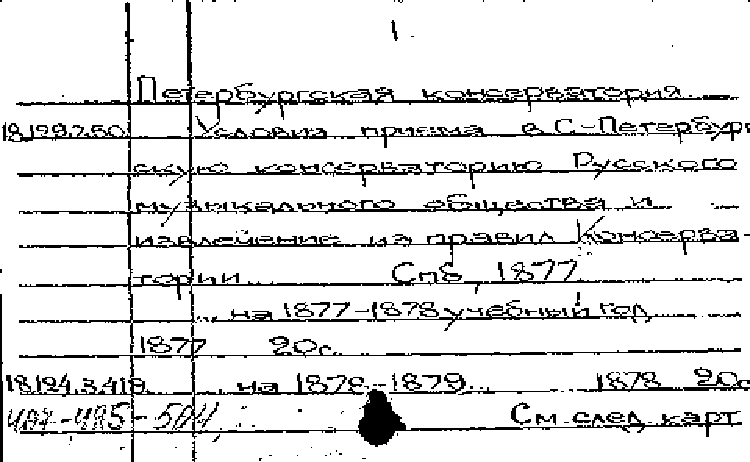 1.
Петербургская консерватория
18.199.7.50 Условия приема в С-Петербург
скую консерваторию Русского
музыкального общества и
извлечение из правил Консерва-
тории Спб, 1877
на 1877-1878 учебный год
1877 20с.
18.194.3.419 на 1878-1879 1878 20с
См след карт